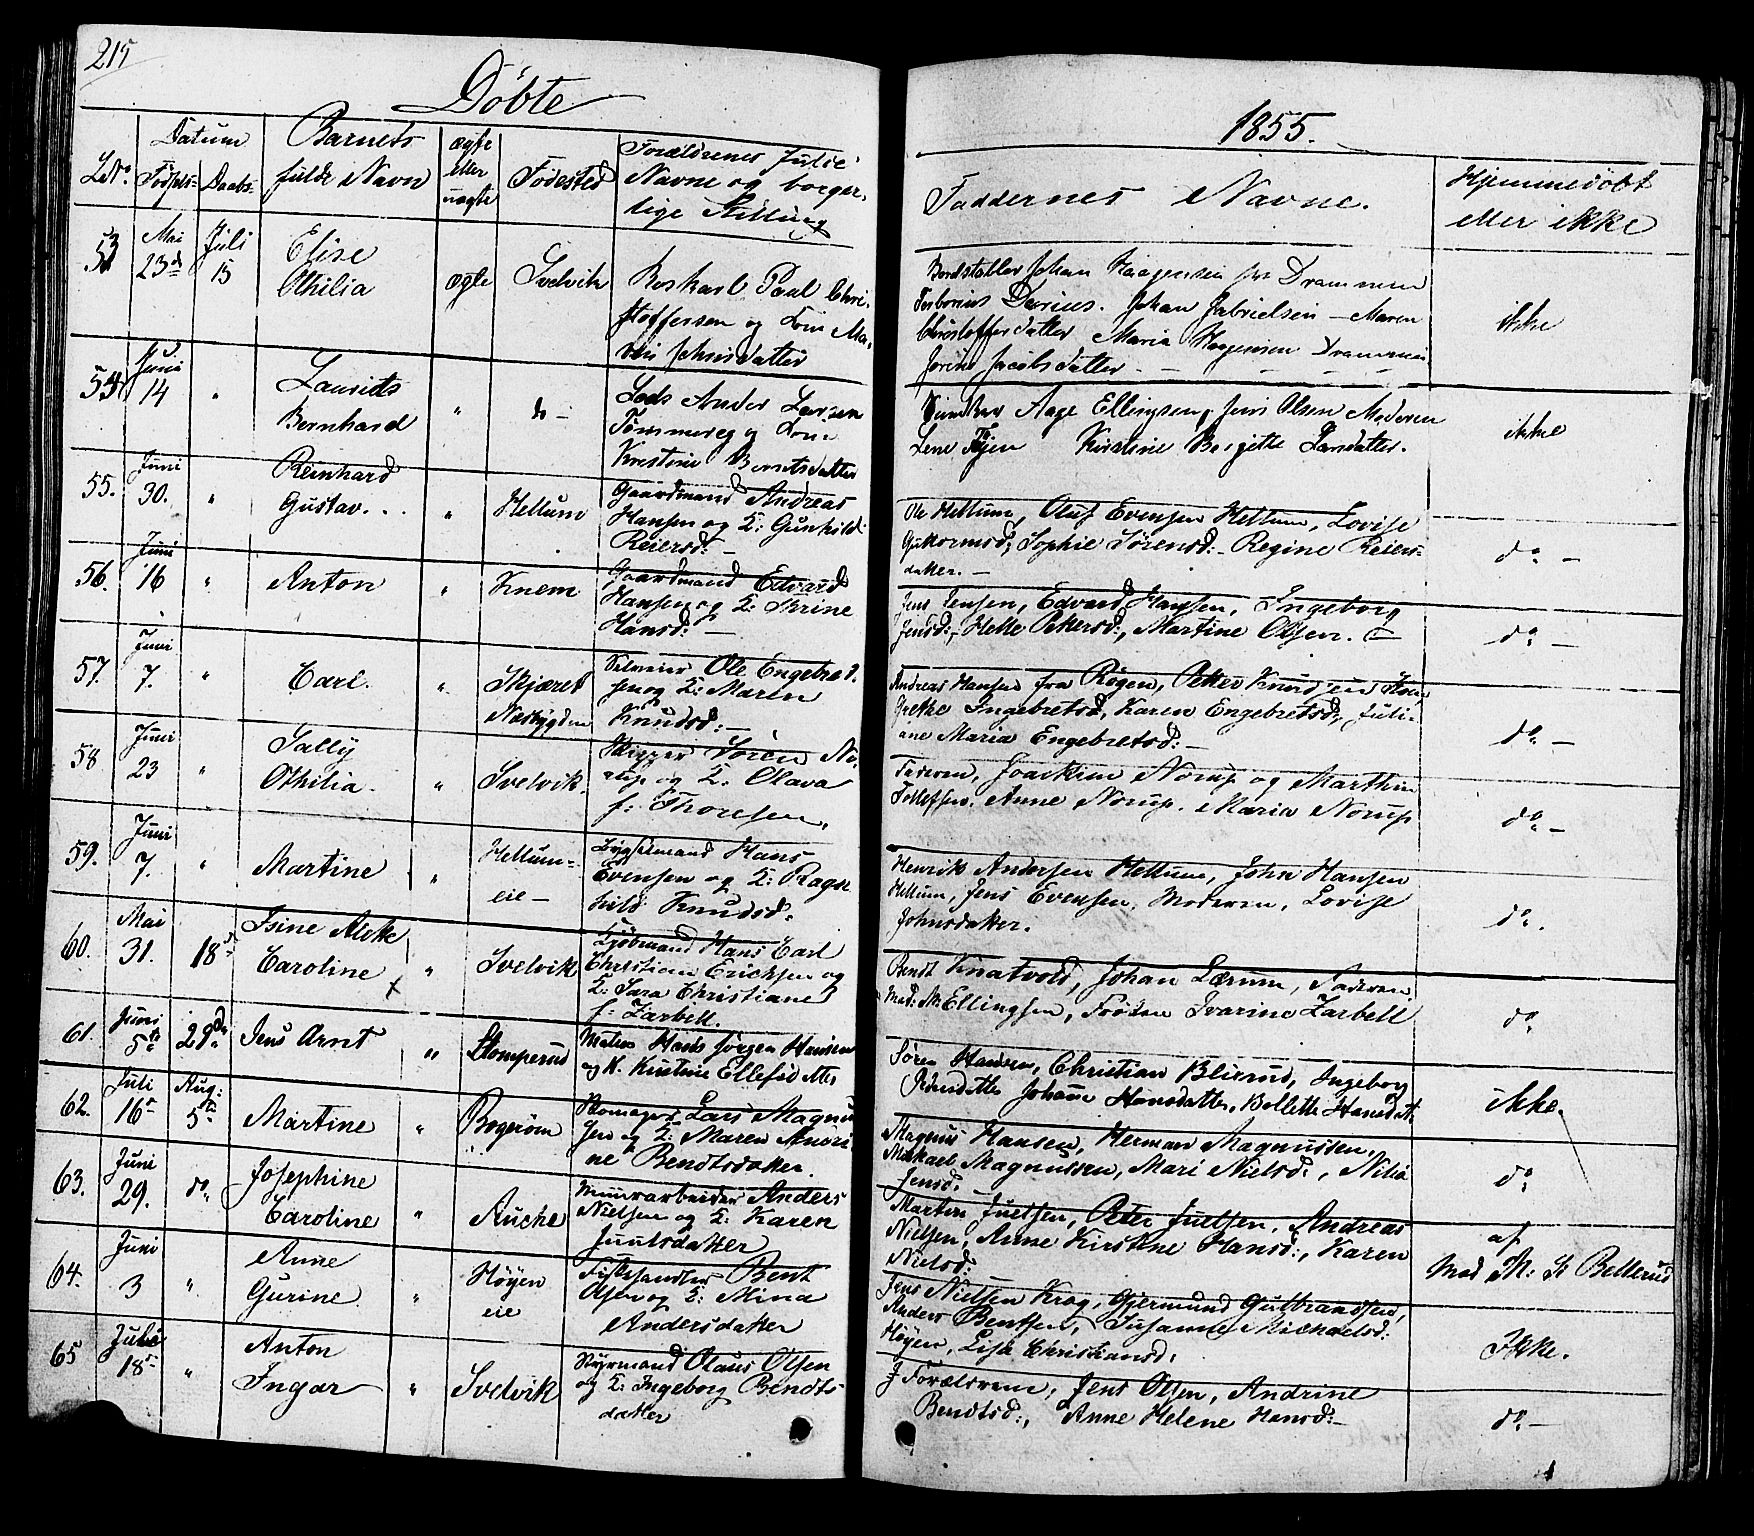 215
Döbte
1855.
LNo. Datum Födsels- Daabs- Barnets fulde Navn ægte eller uægte Födested Forældrenes fulde Navne og borgerlige Stilling
Faddernes Navne. Hjemmedöbt eller ikke
53 Mai 23de Juli 15 Elise Othilia ægte Svelvik Paul Christoffersen og
Johan Haagensen fra Drammen
Darius. Johan Gabrielsen - Maren
Christoffersdatter Maria Haagensen Drammen
Jacobsdatter ikke
54 Juni 14 " Laurits Bernhard " do - Lods Ander Larsen
Tømmeraas og Kone
Kristine Berntsdatter
Aage Ellingsen, Jens Olsen Moderen
Lene Kirstine Birgitte Larsdatter. ikke
55. Juni 30. " Reinhard Gustav. " Hellum Gaardmand Andreas
Hansen og K: Gunhild
Reiersd: -
Ole Hellum, Oluf Evensen Hellum, Lovise
Guttormsd, Sophie Sörensd: - Regine Reiers-
datter. - do -
56. Juni 16 " Anton " Knem Gaardmand Edvard
Hansen og K:
Hansd: -
Jens Jensen, Edvard Hansen, Ingeborg
Jensd:, Helle Pettersd:, Martine Olsen. do -
57. Juni 7. " Carl. " Skjæret Næsbygden Ole Engebret-
sen og K: Maren
Knudsd: -
Andreas Hansen fra Rögen, Petter Knudsen
Grethe Ingebretsd, Karen Engebretsd, Juli-
ane Maria Engebretsd: - do -
58 Juni 23 " Sally Othilia. " Svelvik. Skipper Sören No-
rup og K: Olava
f: Thoresen,
Faderen, Joachim Norup og Marthin
Tollefsen, Anne Norup. Maria Norup do -
59. Juni 7. " Martine " Hellum-
eie - Bygselmand Hans
Evensen og K: Ragn
hild Knudsd.
Henrik Andersen Hellum, John Hansen
Hellum, Jens Evensen, Moderen, Lovise
Johnsdatter. do.
60. Mai 31. 18de Isine Caroline " Svelvik Kjöbmand Hans Carl
Christian Ericksen og
K: Sara Christiane
f. Zarbell.
Bendt Knatvold, Johan Lærum, Faderen,
Mad: M Ellingsen, Fröken Ivarine Zarbell do
61. Juni 5te 29de Jens Arnt " Stomperud Matros Hans Jörgen Hansen
og K. Kirstine
Sören Hansen, Christian Blixrud, Ingeborg
Johanne Hansdatter, Bollette Hansdat. ikke.
62. Juli 16 Aug: 5te Martine " Bogeröm Skomager Lars Magnus
sen og K: Maren Andri
ne Bendtsdatter
Magnus Hansen, Herman Magnussen,
Mikkael Magnussen, Mari Nielsd:,
Jensd: do
63. Juni 29. do Josephine Caroline " Auche Anders
Nielsen og K: Karen
Juulsdatter
Martin Juelsen, Peter Juelsen, Andreas
Nielsen, Anne Kirstine Hansd:, Karen
Nielsd: af Mad M: Bellerud
64. Juni 3 " Anne Gurine. " Höyen
eie Bent
Olsen og K: Mina
Andersdatter
Jens Nielsen Krog, Gjermund Gulbrandsen,
Anders Bentsen, Susanne Michaelsd:
Höyen, Lise Christiansd: Ikke.
65 Juli 18 " Anton Ingar " Svelvik Styrmand Olaus Olsen
og K: Ingeborg Bendts
datter
Forældrene, Jens Olsen, Andrine
Bendtsd:, Anne Helene Hansd: - do -